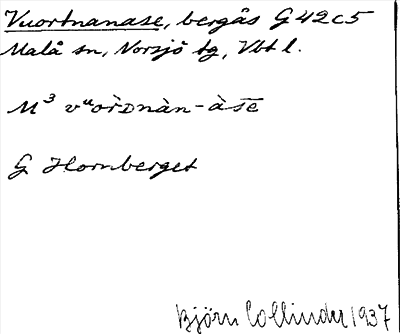 Vuortnanase, bergås G42c5
Malå sn, Norsjö tg, Vbt l.
M³ vᵘor̀ᴅnàn-àse̅
G Hornberget
Björn Collinder 1937